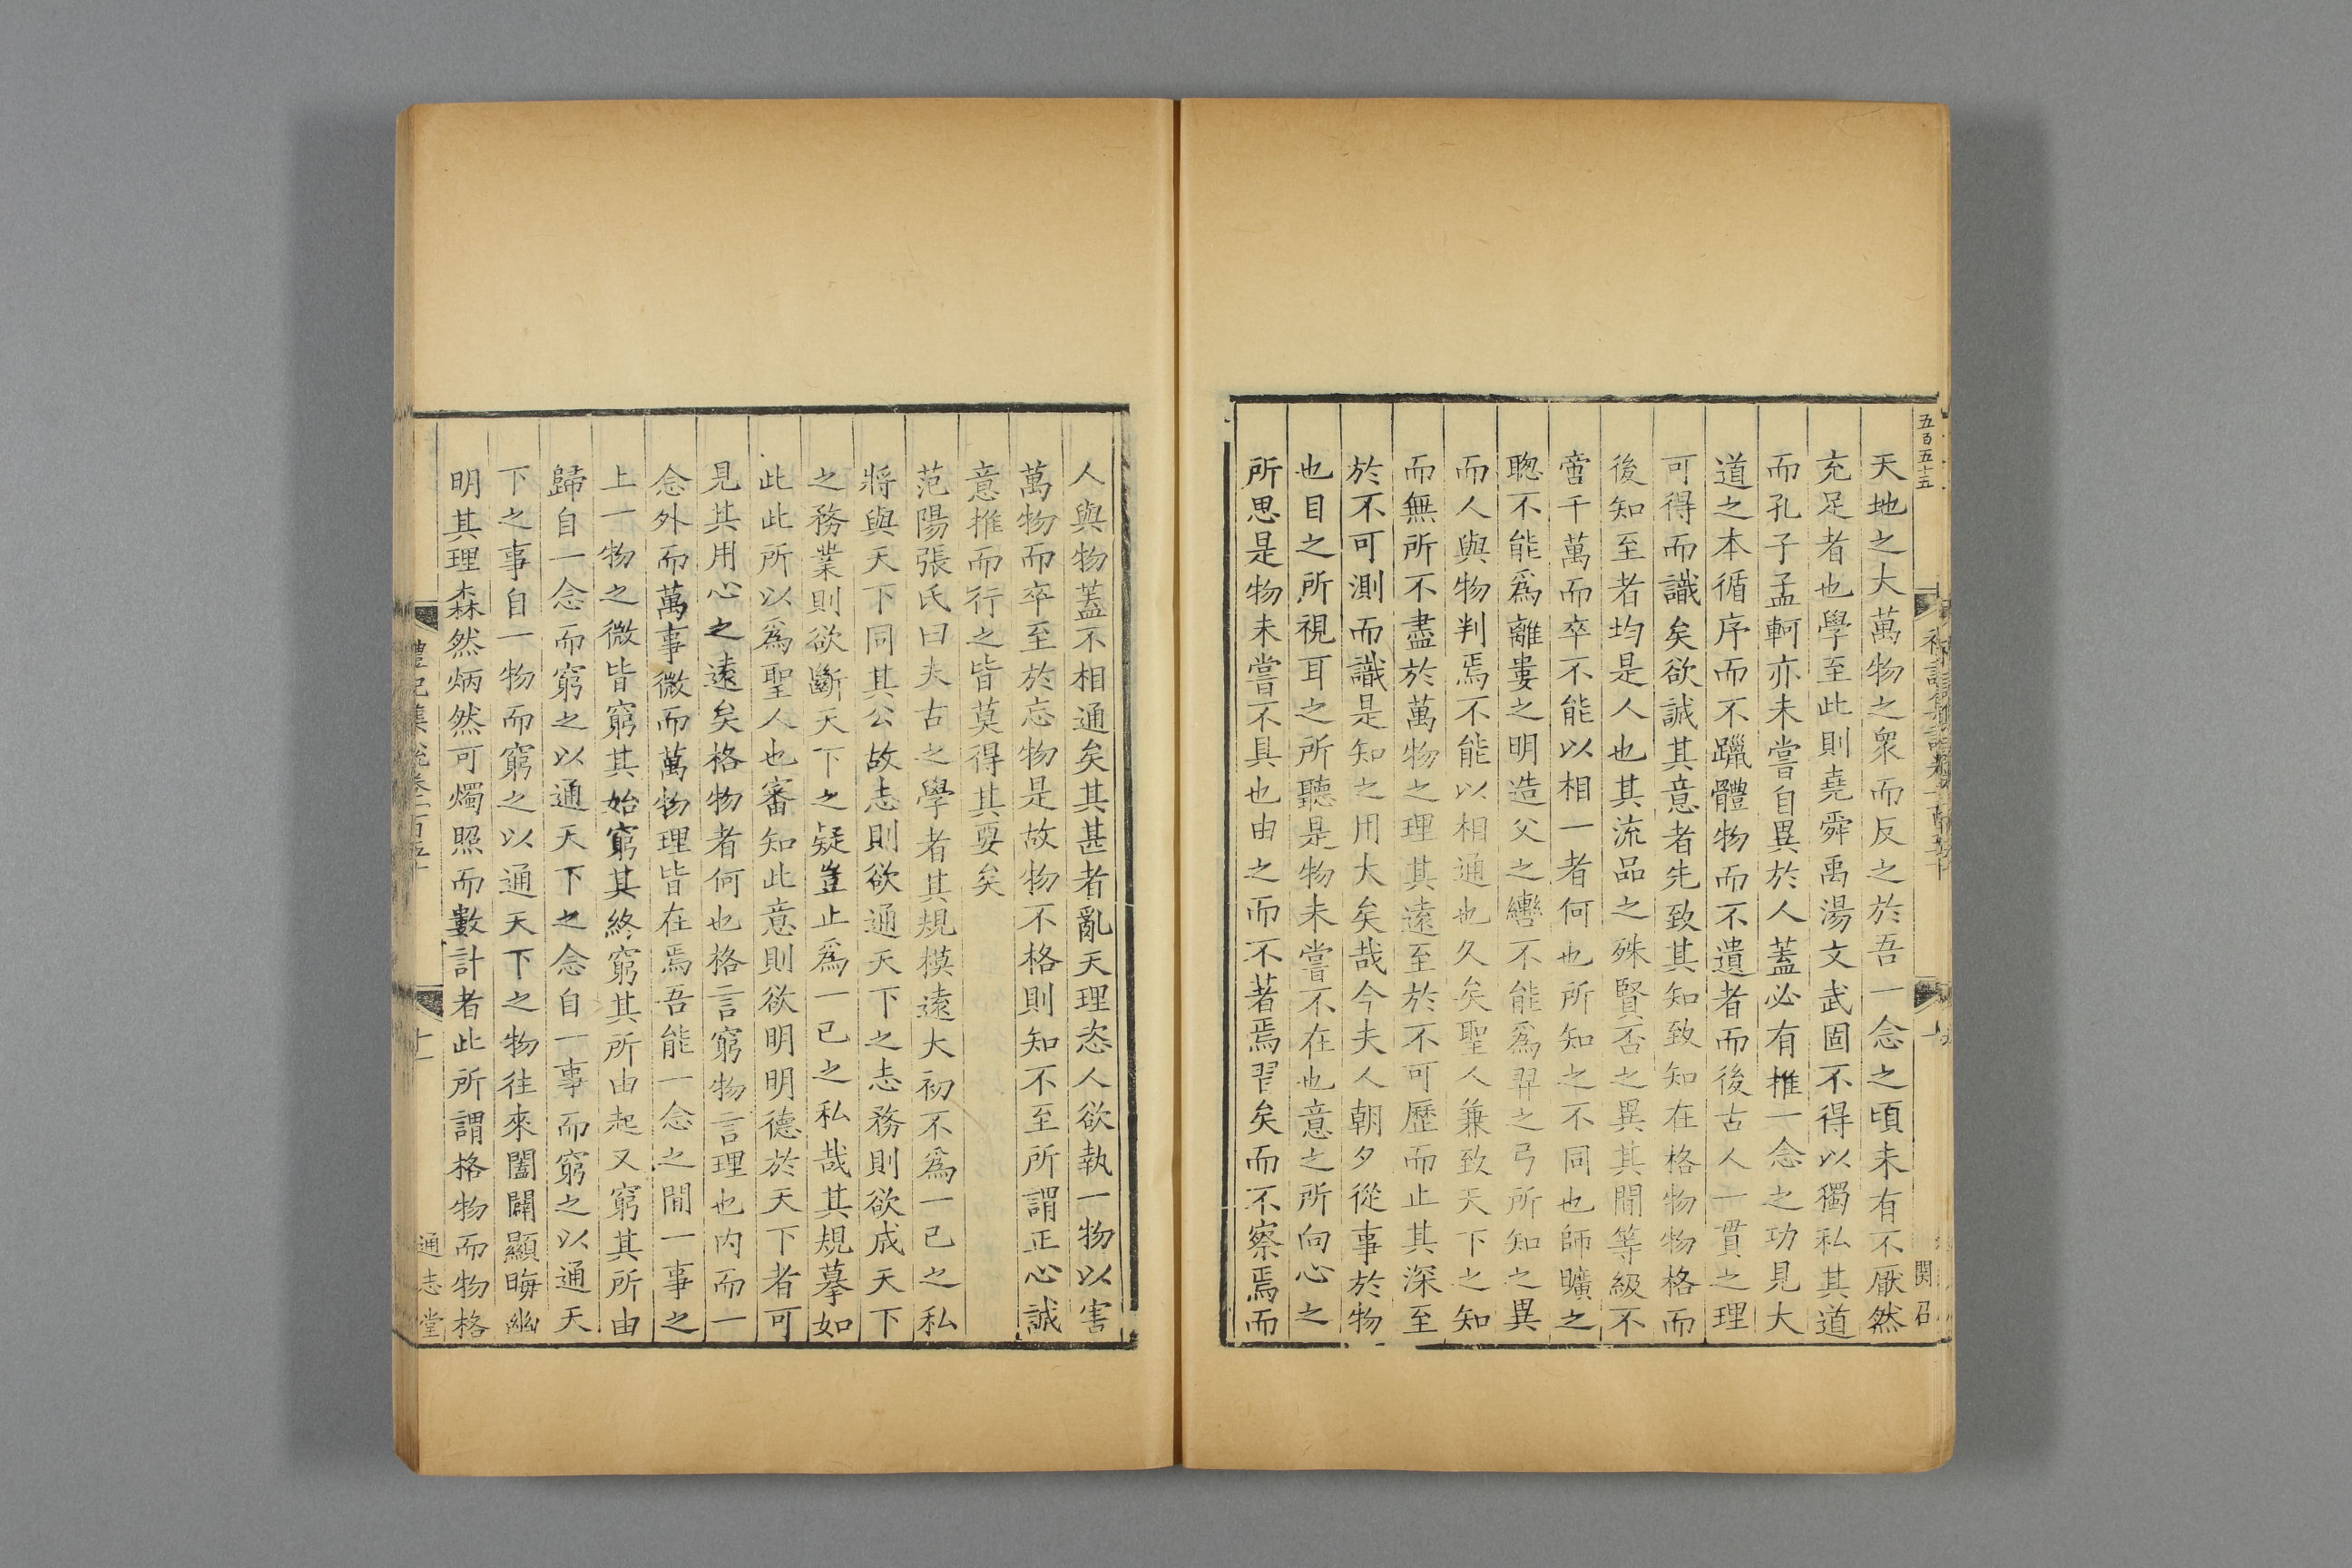 五百五十五
関召
天地之大萬物之衆而反之於吾一念之頃未有不厭然
充足者也學至此則堯舜禹湯文武固不得以獨私其道
而孔子孟軻亦未嘗自異於人蓋必有推一念之功見大
道之本循序而不躐體物而不遺者而後古人一貫之理
可得而識矣欲誠其意者先致其知致知在格物物格而
後知至者均是人也其流品之殊賢否之異其間等級不
啻千萬而卒不能以相一者何也所知之不同也師曠之
聰不能爲離婁之明造父之轡不能爲羿之弓所知之異
而人與物判焉不能以相通也久矣聖人兼致天下之知
而無所不盡於萬物之理其遠至於不可歷而止其深至
於不可測而識是知之用大矣哉今夫人朝夕從事於物
也目之所視耳之所聽是物未嘗不在也意之所向心之
所思是物未嘗不具也由之而不著焉習矣而不察焉而
人與物蓋不相通矣其甚者亂天理恣人欲執一物以害
萬物而卒至於忘物是故物不格則知不至所謂正心誠
意推而行之皆莫得其要矣
范陽張氏曰夫古之學者其規模遠大初不爲一己之私
將與天下同其公故志則欲通天下之志務則欲成天下
之務業則欲斷天下之疑豈止爲一己之私哉其規摹如
此此所以爲聖人也審知此意則欲明明德於天下者可
見其用心之遠矣格物者何也格言窮物言理也內而一
念外而萬事微而萬物理皆在焉吾能一念之間一事之
上一物之微皆窮其始窮其終窮其所由起又窮其所由
歸自一念而窮之以通天下之念自一事而窮之以通天
下之事自一物而窮之以通天下之物往來闔闢顯晦幽
明其理森然炳然可燭照而數計者此所謂格物而物格
禮記集說卷一百五十
十一
通志堂